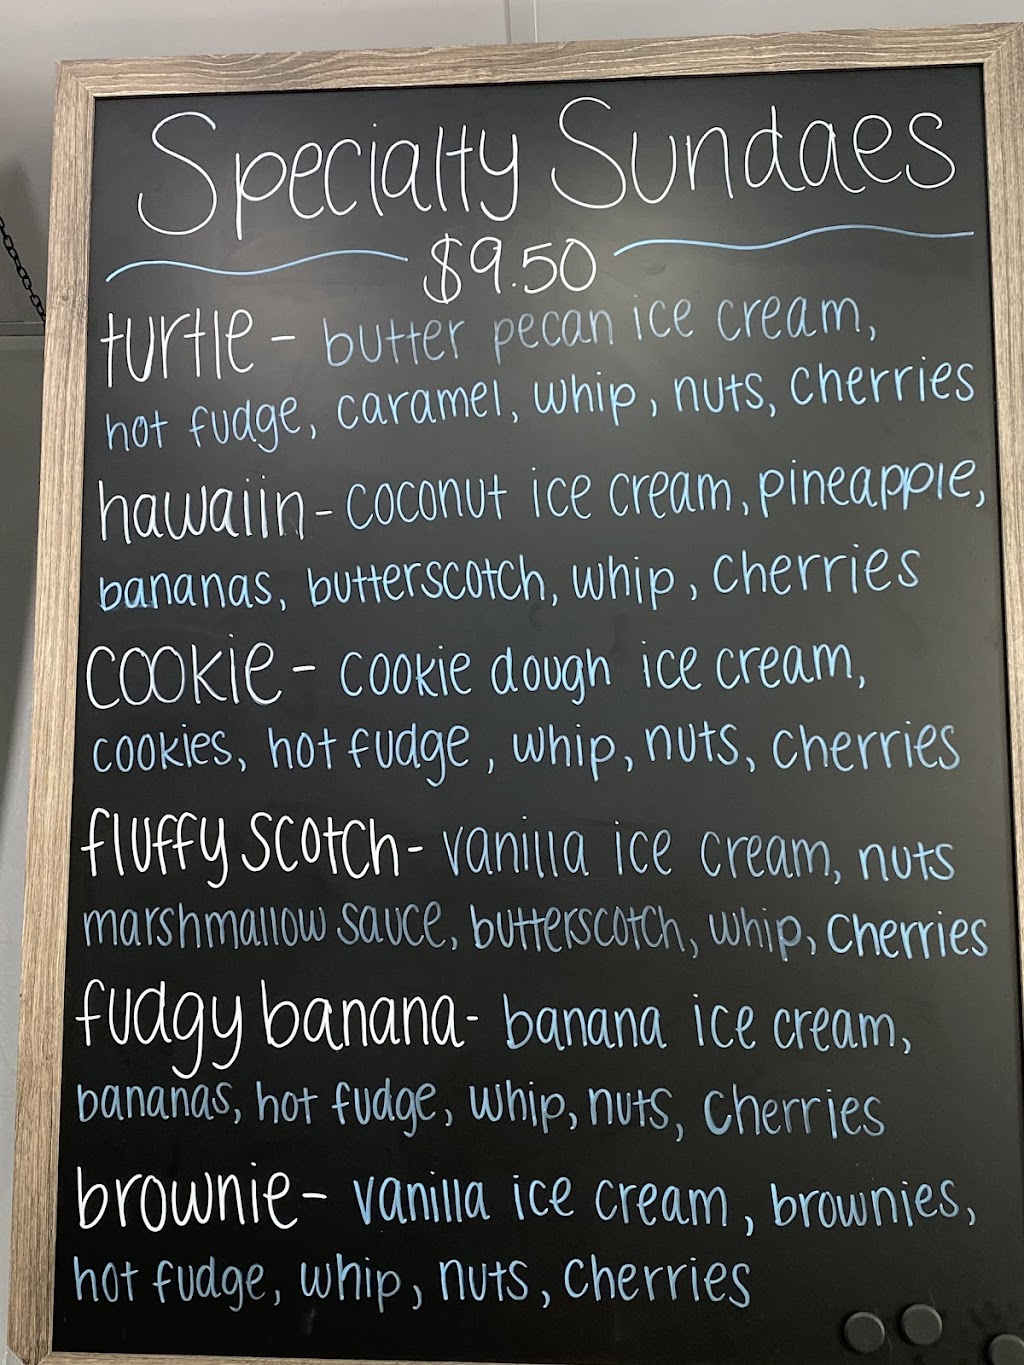 Specialty Sundaes
$9.50
turtle - butter pecan ice cream,
hot fudge, caramel, whip, nuts, cherries
hawaiin - coconut ice cream, pineapple,
bananas, butterscotch, whip, cherries
cookie - cookie dough ice cream,
cookies, hot fudge, whip, nuts, cherries
fluffy scotch - vanilla ice cream, nuts
marshmallow sauce, butterscotch, whip, cherries
fudgy banana - banana ice cream,
bananas, hot fudge, whip, nuts, cherries
brownie - vanilla ice cream, brownies,
hot fudge, whip, nuts, cherries